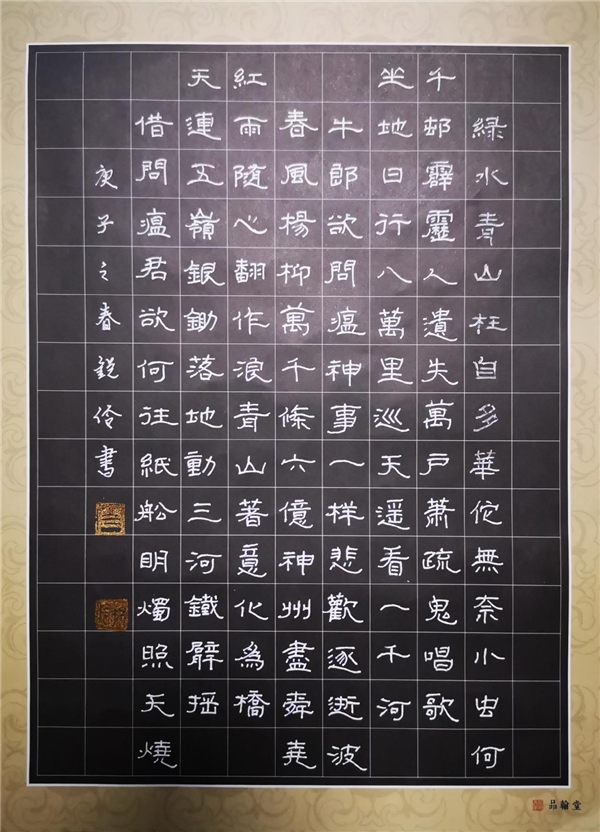 綠水青山枉自多華佗無奈小虫何
千邨霹靂人遺失萬戶蕭疏鬼唱歌
坐地日行八萬里巡天遥看一千河
牛郎欲問瘟神事一样悲歡逐逝波
春風楊柳萬千條六億神州盡舜堯
紅雨隨心翻作浪青山著意化為橋
天連五嶺銀鋤落地動三河鐵臂摇
借問瘟君欲何往紙船明燭照天燒
庚子之春銳伶書
品翰堂